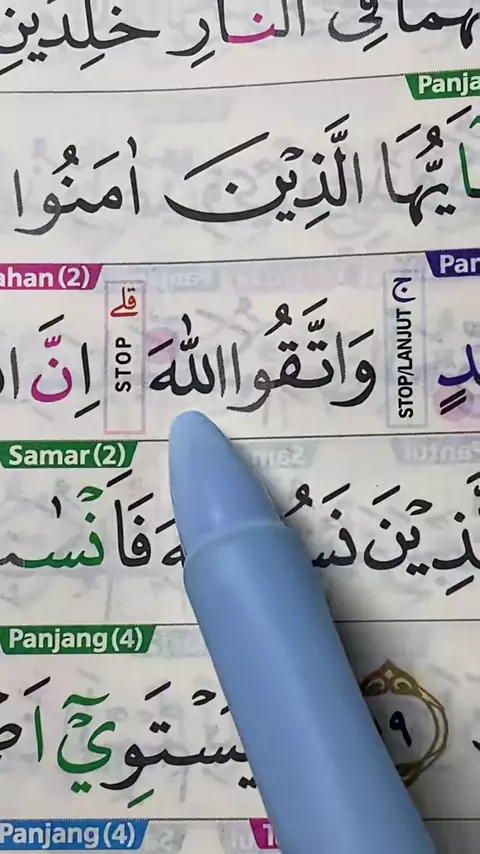 هُمَا فِى النَّارِ خٰلِدَيْنِ
Panja
اَيُّهَا الَّذِيْنَ اٰمَنُوا
ahan (2) Pan
دٍ ج STOP/LANJUT وَاتَّقُوا اللّٰهَ قلى STOP اِنَّ ا
Samar (2)
ذِيْنَ نَسُ هَ فَاَنْسٰ
Panjang (4)
٩ يَسْتَوِيْٓ اَ
Panjang (4)